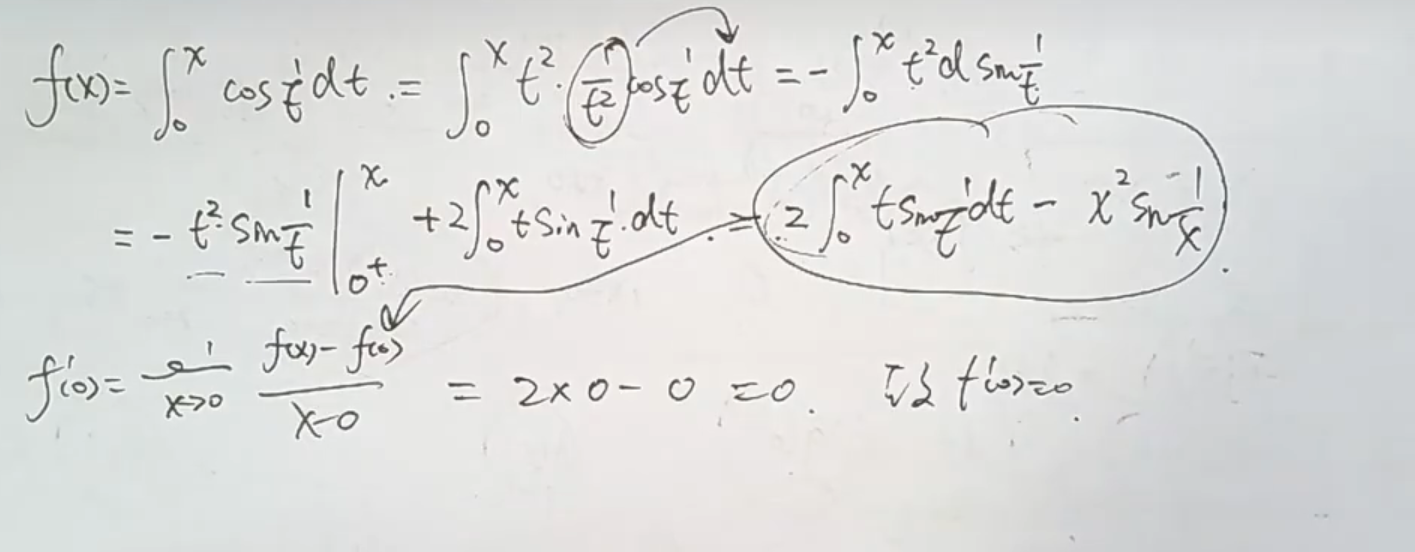 f(x)= ∫₀ˣ cos 1/t dt .= ∫₀ˣ t²· (1/t²) cos 1/t dt = - ∫₀ˣ t² d sin 1/t
= - t² sin 1/t |₀₊ˣ + 2∫₀ˣ t sin 1/t · dt . = 2 ∫₀ˣ t sin 1/t dt - x² sin 1/x .
f'(0)= lim x→0 (f(x)- f(0))/(x-0) = 2×0- 0 =0. f'(0)=0.